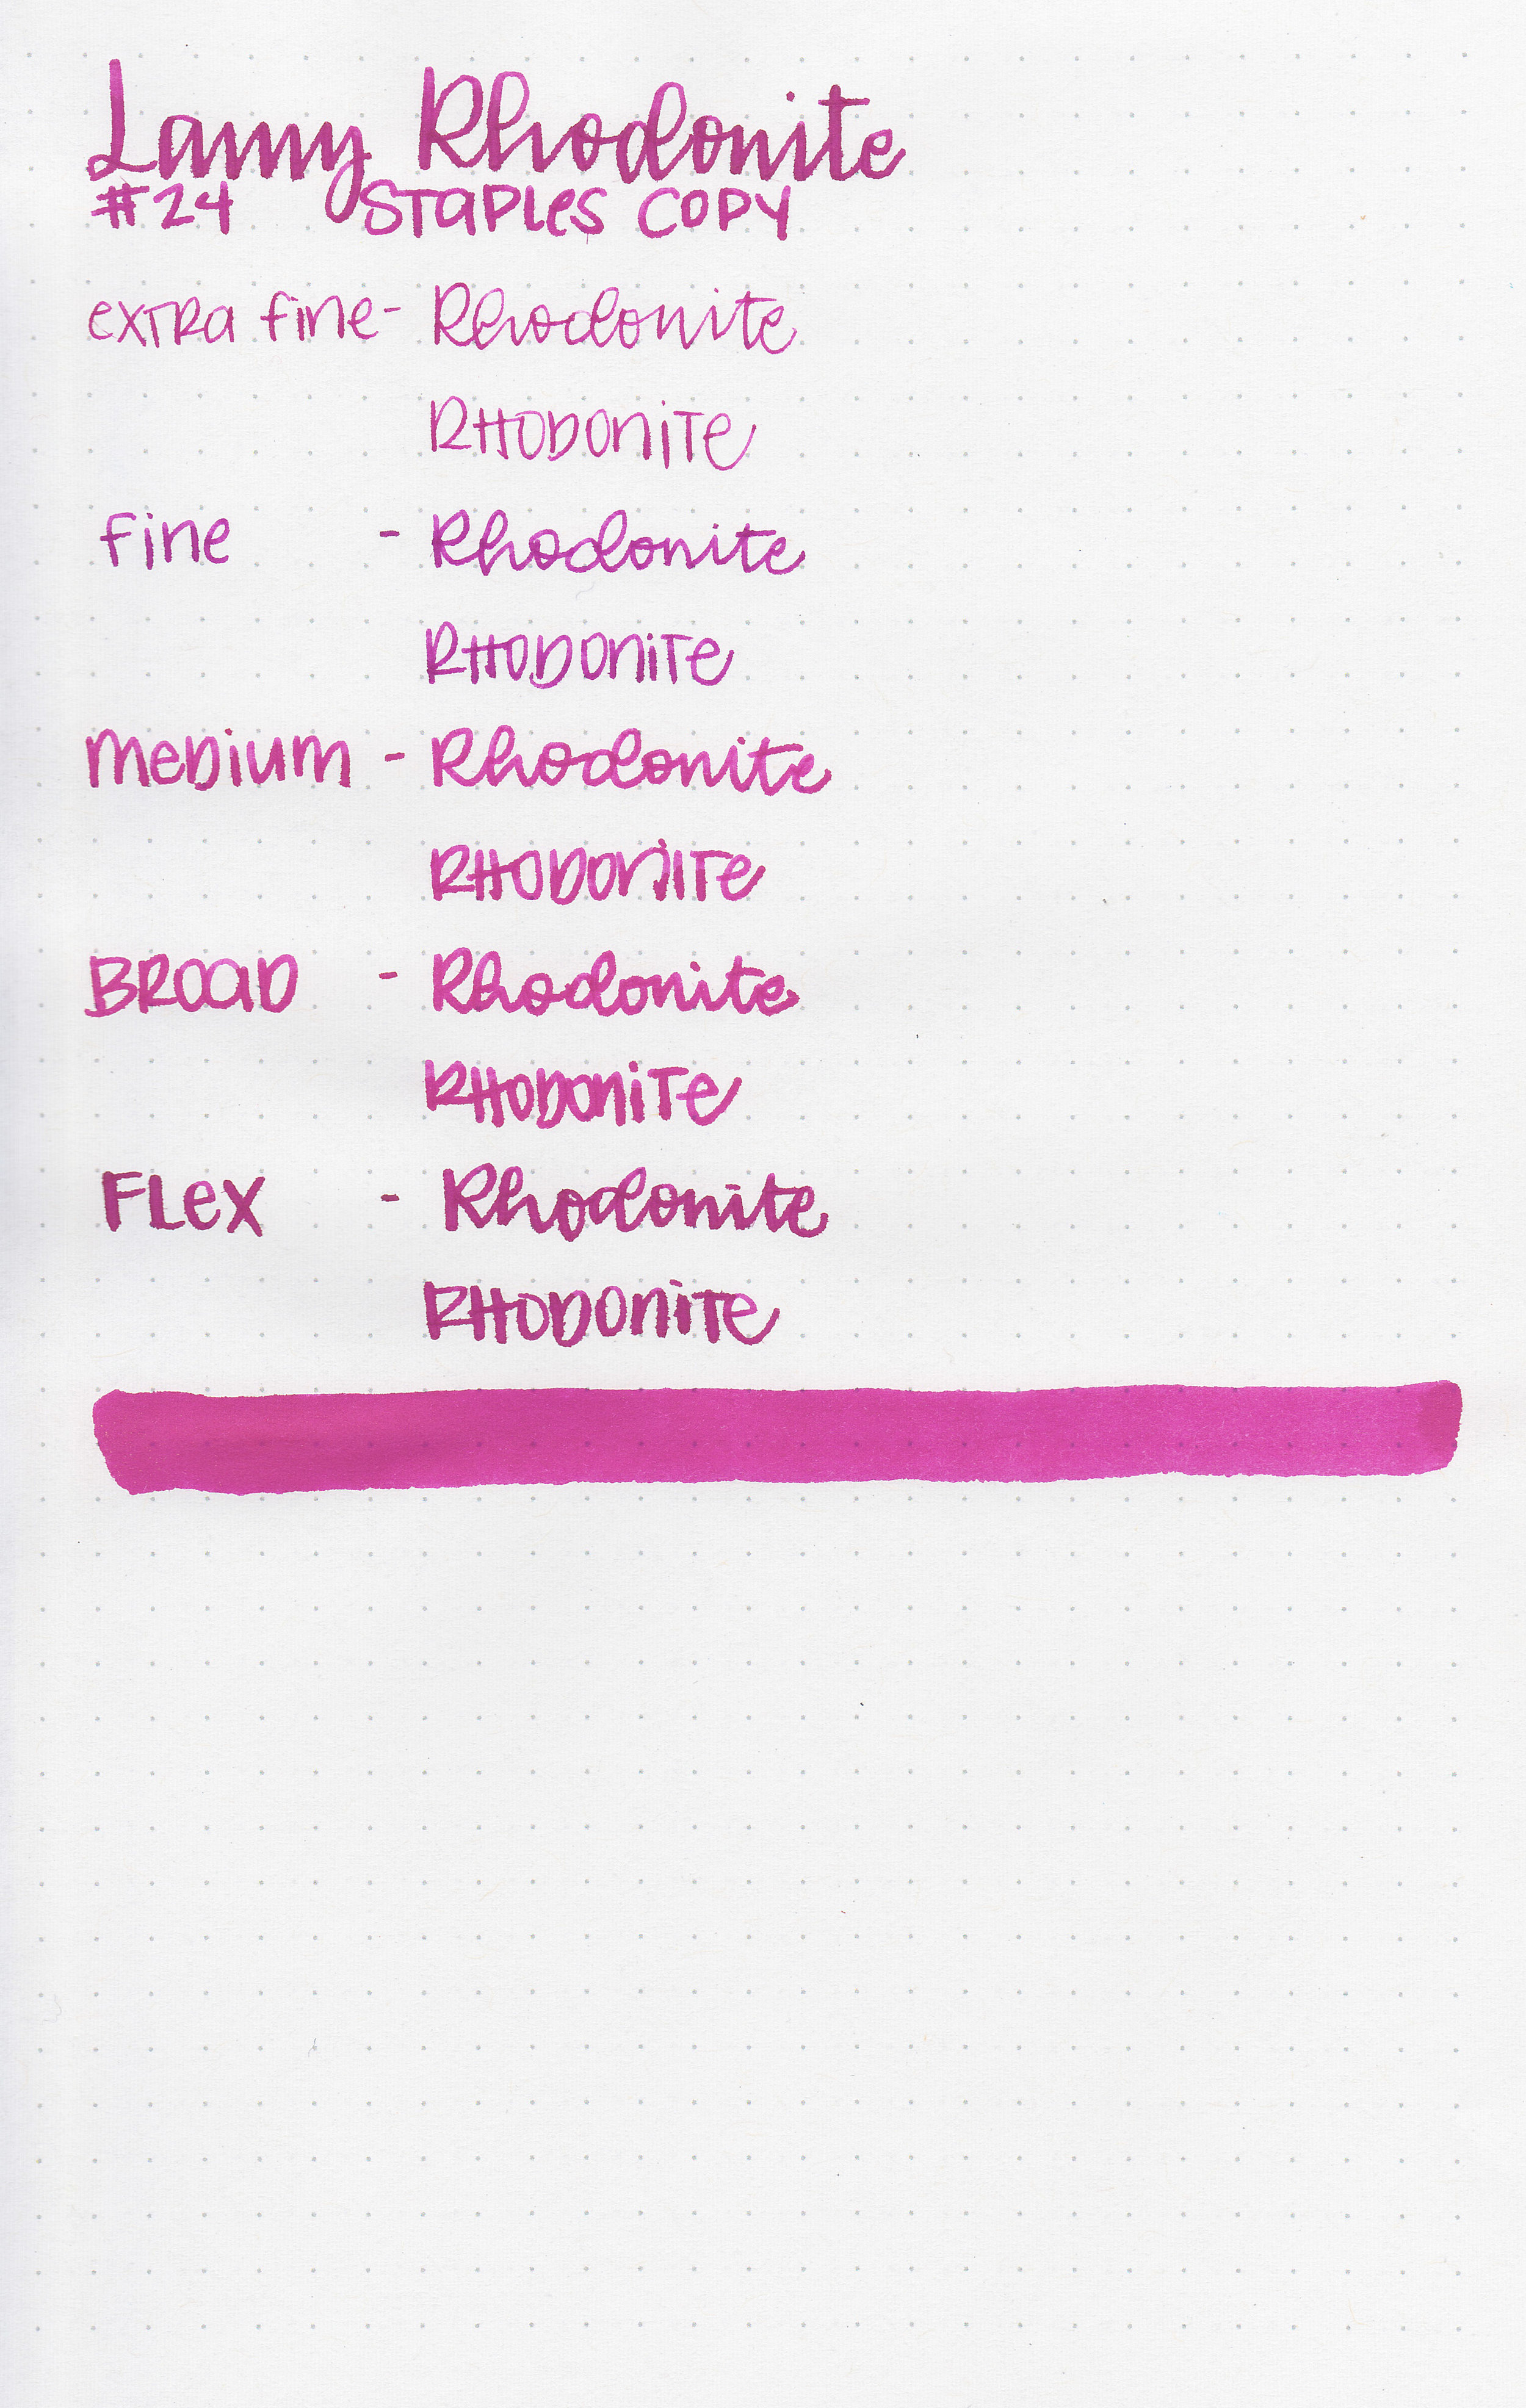 Lamy Rhodonite
#24 Staples Copy
extra fine - Rhodonite
RHODONITE
fine - Rhodonite
RHODONITE
medium - Rhodonite
RHODONITE
BROAD - Rhodonite
RHODONITE
FLEX - Rhodonite
RHODONITE